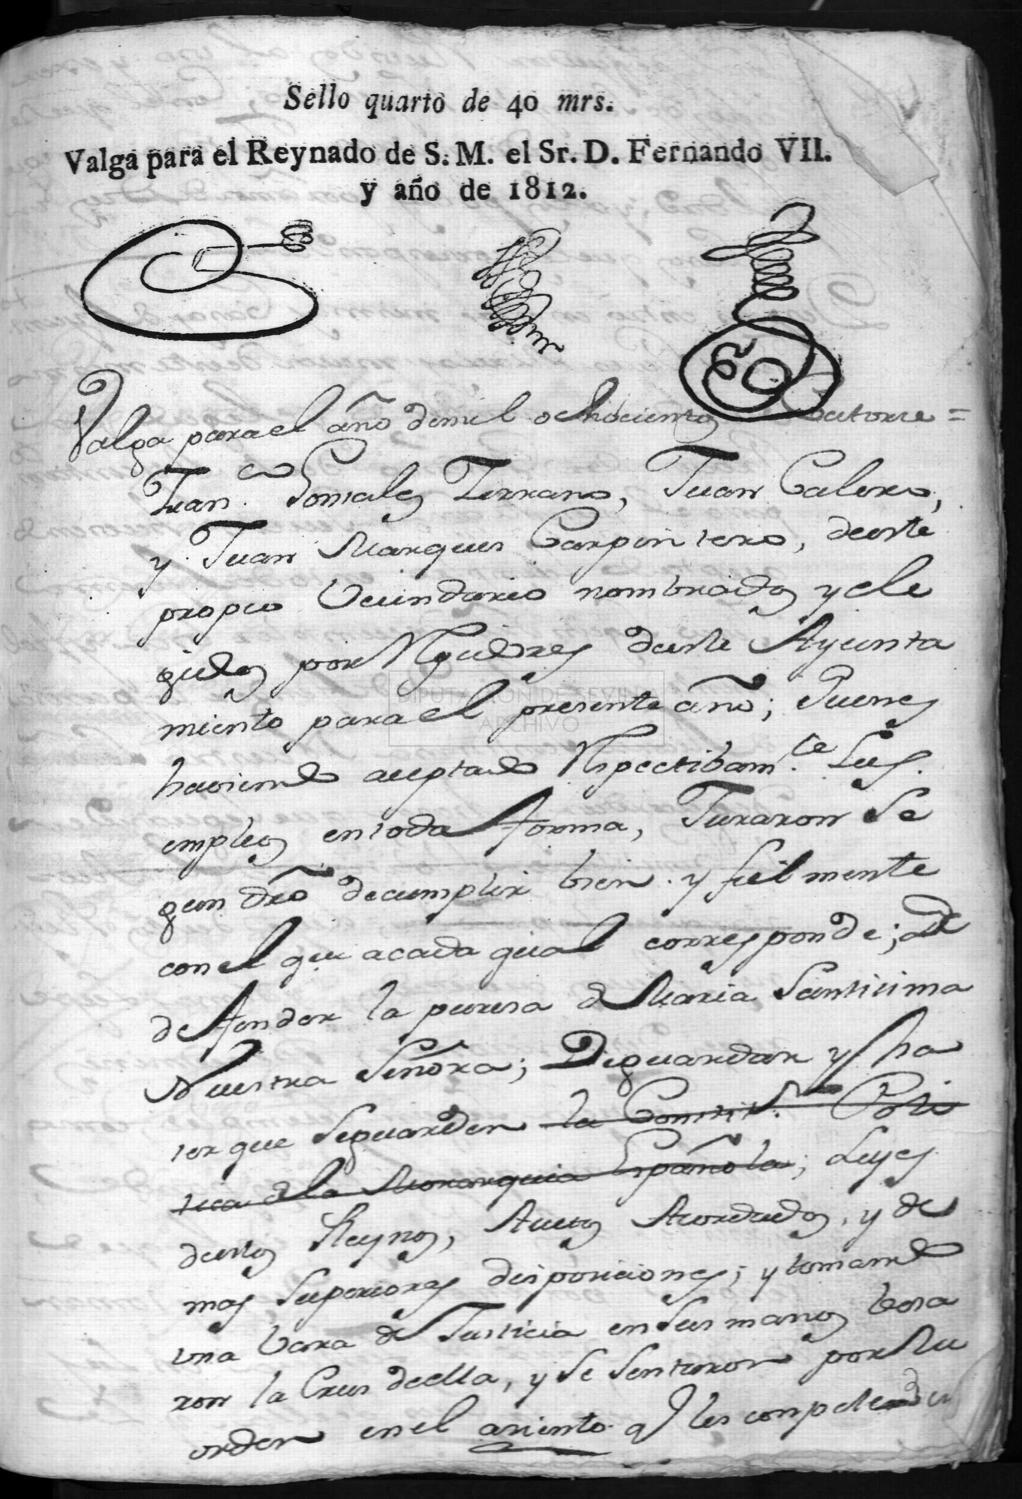 Sello quarto de 40 mrs.
Valga para el Reynado de S. M. el Sr. D. Fernando VII.
y año de 1812.
Valga para el año de mil ochocientos catorce =
Fran.co Gonzales Serrano, Juan Calero,
y Juan Marques Carpintero, de este
propio Vecindario nombrados y ele
gidos por Rexidores de este Ayunta
miento para el presente año; Quienes
haviendo aceptado Respectibam.te sus
empleos en toda forma, Juraron se
gun dro de cumplir bien y fielmente
con el que a cada qual corresponde; de
defender la puresa de Maria Santisima
Nuestra Señora; De guardar y ha
ser que se guarden la Constit.n Poli
tica de la Monarquia Española; Leyes
de estos Reynos, Autos Acordados, y de
mas superiores disposiciones; y tomando
una Vara de Justicia en sus manos besa
ron la Crus de ella, y se sentaron por su
orden en el asiento q les compete
DIPUTACION DE SEVILLA
ARCHIVO